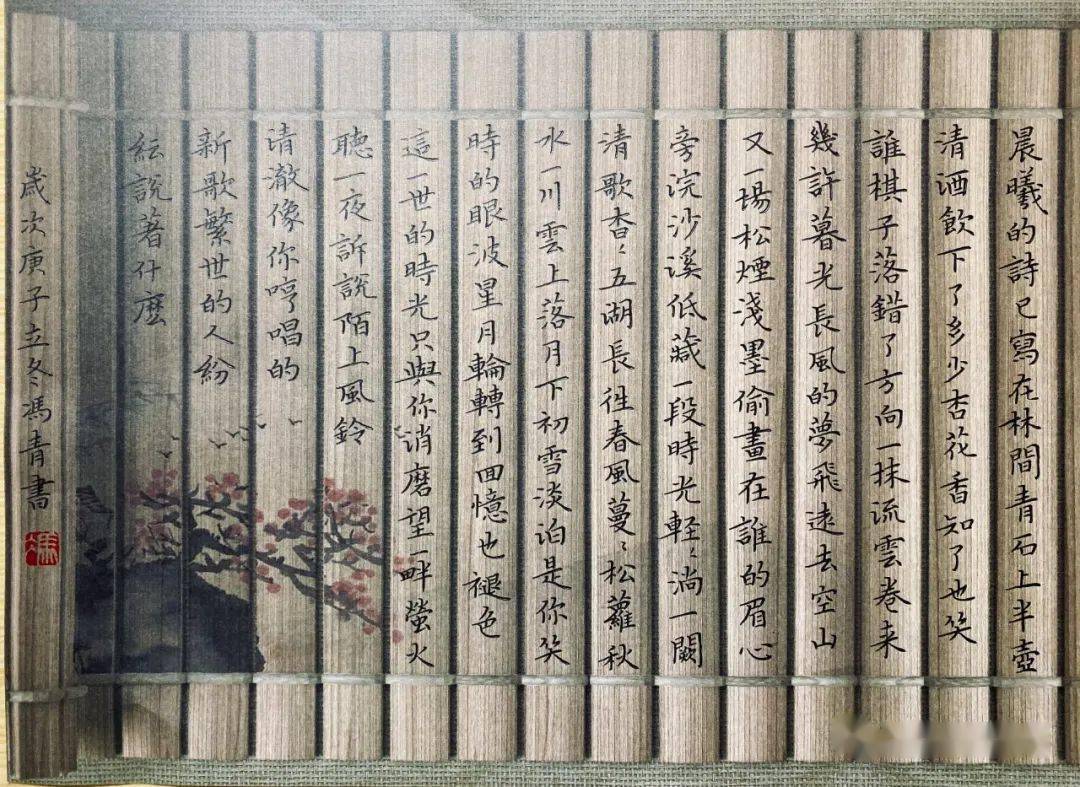 晨曦的詩已寫在林間青石上半壺
清酒飲下了多少杏花香知了也笑
誰棋子落錯了方向一抹流雲卷来
幾許暮光長風的夢飛遠去空山
又一場松煙淺墨偷畫在誰的眉心
旁浣沙溪低藏一段時光輕〻淌一闕
清歌杳〻五湖長徃春風蔓〻松蘿秋
水一川雲上落月下初雪淡泊是你笑
時的眼波星月輪轉到回憶也褪色
這一世的時光只與你消磨望一畔螢火
聽一夜訴說陌上風鈴
清澈像你哼唱的
新歌繁世的人紛
紜說著什麽
歲次庚子立冬馮青書